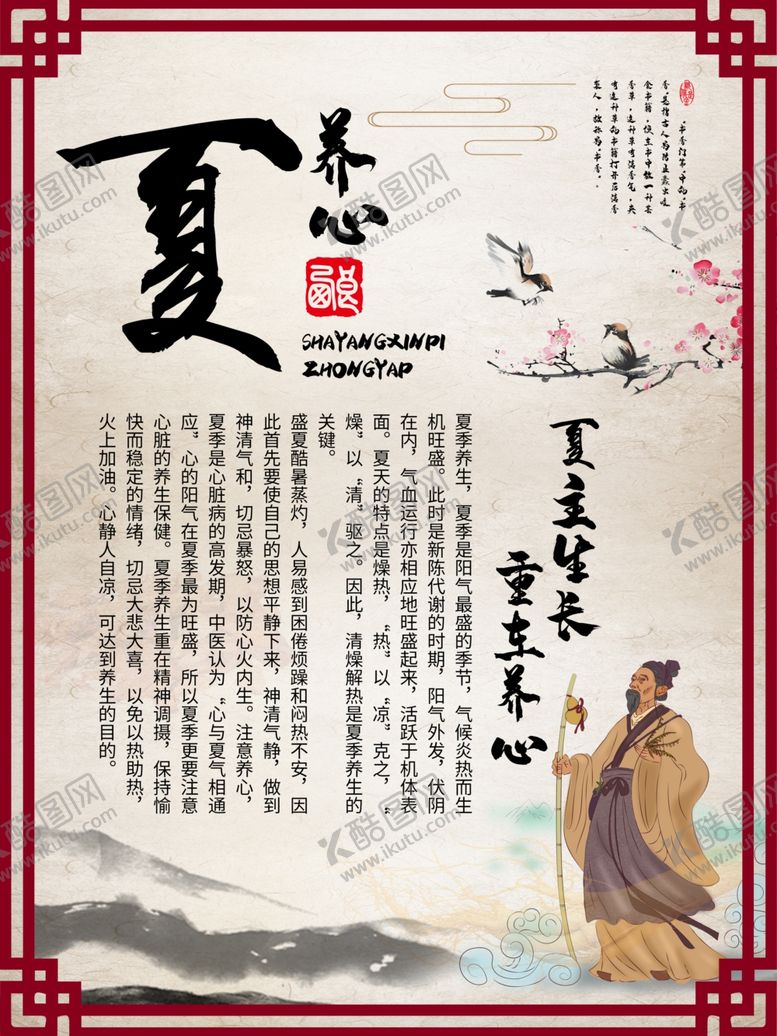 夏
养心
SHAYANGXINPI
ZHONGYAP
“书香门第”中的“书
香”是指古人为防止蠹虫咬
食书籍，便在书中放一种芸
香草，这种草有清香气，夹
有这种草的书籍打开后清香
袭人，故称为“书香”。
夏主生长
重在养心
夏季养生，夏季是阳气最盛的季节，气候炎热而生
机旺盛。此时是新陈代谢的时期，阳气外发，伏阴
在内，气血运行亦相应地旺盛起来，活跃于机体表
面。夏天的特点是燥热，“热”以“凉”克之，“
燥”以“清”驱之。因此，清燥解热是夏季养生的
关键。
盛夏酷暑蒸灼，人易感到困倦烦躁和闷热不安，因
此首先要使自己的思想平静下来，神清气静，做到
神清气和，切忌暴怒，以防心火内生。注意养心，
夏季是心脏病的高发期，中医认为“心与夏气相通
应。”心的阳气在夏季最为旺盛，所以夏季更要注意
心脏的养生保健。夏季养生重在精神调摄，保持愉
快而稳定的情绪，切忌大悲大喜，以免以热助热，
火上加油。心静人自凉，可达到养生的目的。
酷图网
www.ikutu.com